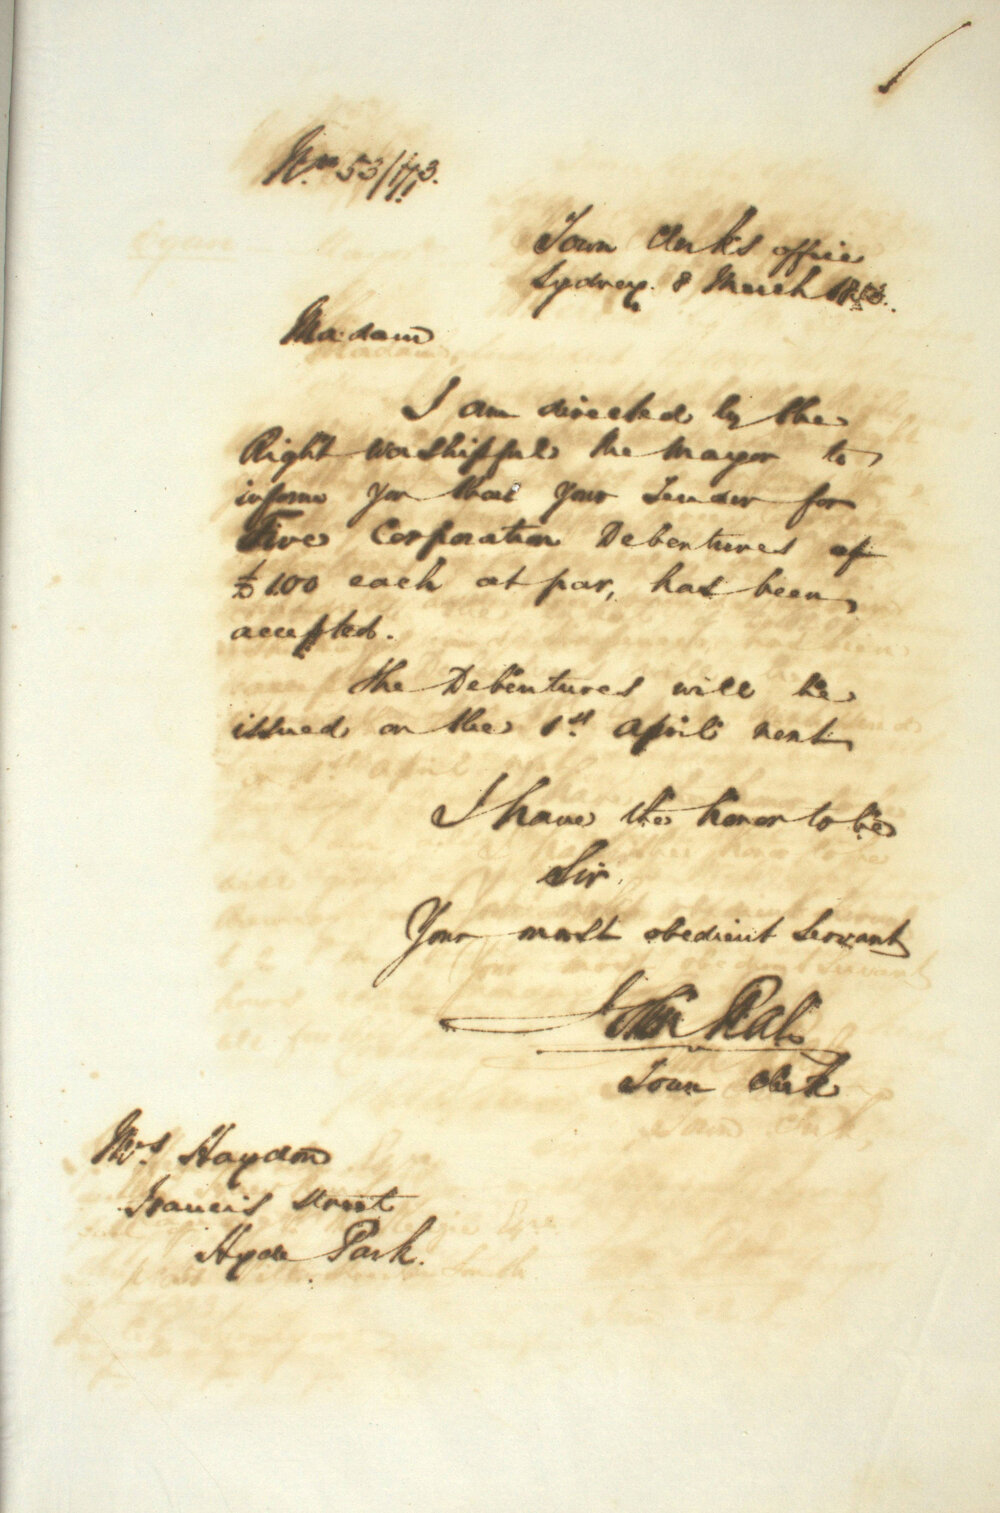 No. 53/173.
Town Clerks office
Sydney. 8 March 1853.
Madam
I am directed by the
Right Worshipful the Mayor to
inform you that your Tender for
Five Corporation Debentures of
£100 each at par, has been
accepted.
The Debentures will be
issued on the 1st April next
I have the honor to be
Sir,
Your most obedient Servant
John Rae
Town Clerk
Mrs Haydon
Francis Street
Hyde Park.